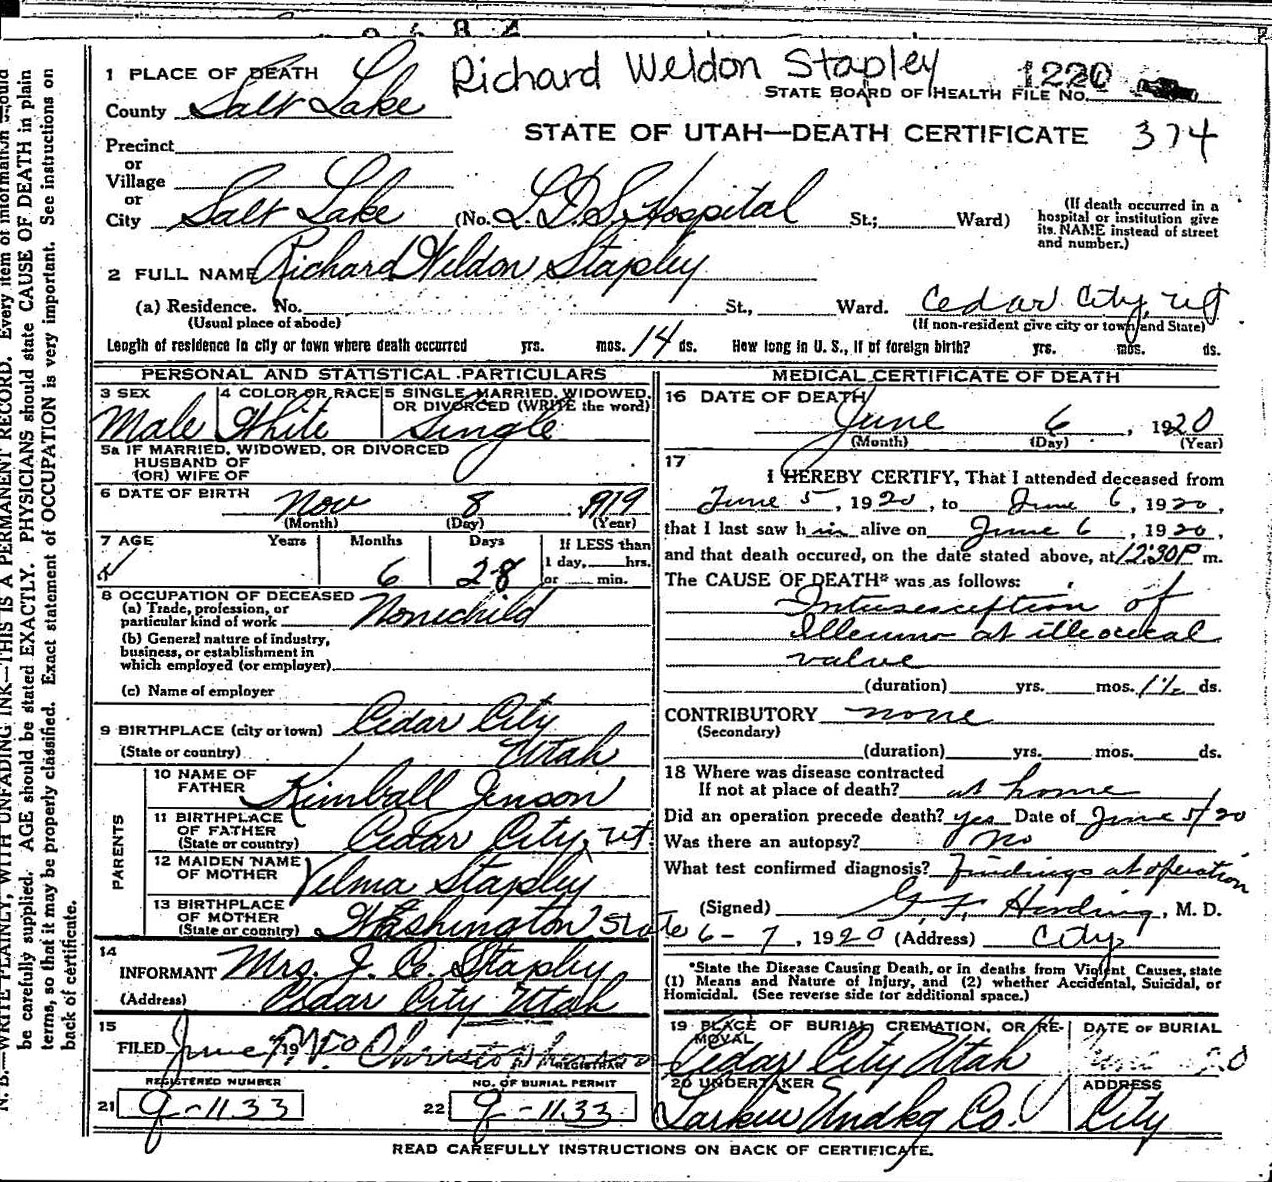 Richard Weldon Stapley
1 PLACE OF DEATH
County Salt Lake
STATE BOARD OF HEALTH FILE No. 1220
STATE OF UTAH—DEATH CERTIFICATE 374
Precinct
or
Village
or
City Salt Lake (No. L.D.S. Hospital St.; Ward)
(If death occurred in a hospital or institution give its NAME instead of street and number.)
2 FULL NAME Richard Weldon Stapley
(a) Residence. No. St., Ward. Cedar City, Ut
(Usual place of abode) (If non-resident give city or town and State)
Length of residence in city or town where death occurred yrs. mos. 14 ds. How long in U. S., if of foreign birth? yrs. mos. ds.
PERSONAL AND STATISTICAL PARTICULARS
3 SEX 4 COLOR OR RACE 5 SINGLE, MARRIED, WIDOWED, OR DIVORCED (WRITE the word)
Male White Single
5a IF MARRIED, WIDOWED, OR DIVORCED
HUSBAND OF
(OR) WIFE OF
6 DATE OF BIRTH Nov 8 1919
(Month) (Day) (Year)
7 AGE Years Months Days If LESS than
1 day, hrs.
6 28 or min.
8 OCCUPATION OF DECEASED
(a) Trade, profession, or
particular kind of work None child
(b) General nature of industry,
business, or establishment in
which employed (or employer)
(c) Name of employer
9 BIRTHPLACE (city or town) Cedar City
(State or country) Utah
PARENTS
10 NAME OF FATHER Kimball Jenson
11 BIRTHPLACE OF FATHER (State or country) Cedar City, Ut.
12 MAIDEN NAME OF MOTHER Velma Stapley
13 BIRTHPLACE OF MOTHER (State or country) Washington State
14
INFORMANT Mrs. J. C. Stapley
(Address) Cedar City Utah
15
FILED June 7 19
REGISTRAR
REGISTERED NUMBER NO. OF BURIAL PERMIT
21 9-1133 22 9-1133
MEDICAL CERTIFICATE OF DEATH
16 DATE OF DEATH
June 6, 1920
(Month) (Day) (Year)
17
I HEREBY CERTIFY, That I attended deceased from
June 5, 1920, to June 6, 1920,
that I last saw him alive on June 6, 1920,
and that death occured, on the date stated above, at 12:30P m.
The CAUSE OF DEATH* was as follows:
Intusseception of
Illeum at illeocecal
valve
(duration) yrs. mos. 1½ ds.
CONTRIBUTORY none
(Secondary)
(duration) yrs. mos. ds.
18 Where was disease contracted
If not at place of death? at home
Did an operation precede death? yes Date of June 5/20
Was there an autopsy? No
What test confirmed diagnosis? Findings at operation
(Signed) G. F. Harding, M. D.
6-7, 1920 (Address) City
*State the Disease Causing Death, or in deaths from Violent Causes, state
(1) Means and Nature of Injury, and (2) whether Accidental, Suicidal, or
Homicidal. (See reverse side for additional space.)
19 PLACE OF BURIAL, CREMATION, OR REMOVAL DATE OF BURIAL
Cedar City Utah
20 UNDERTAKER ADDRESS
Larkin Undkg Co. City
READ CAREFULLY INSTRUCTIONS ON BACK OF CERTIFICATE.
N. B.—WRITE PLAINLY, WITH UNFADING INK—THIS IS A PERMANENT RECORD. Every item of information should
be carefully supplied. AGE should be stated EXACTLY. PHYSICIANS should state CAUSE OF DEATH in plain
terms, so that it may be properly classified. Exact statement of OCCUPATION is very important. See instructions on
back of certificate.